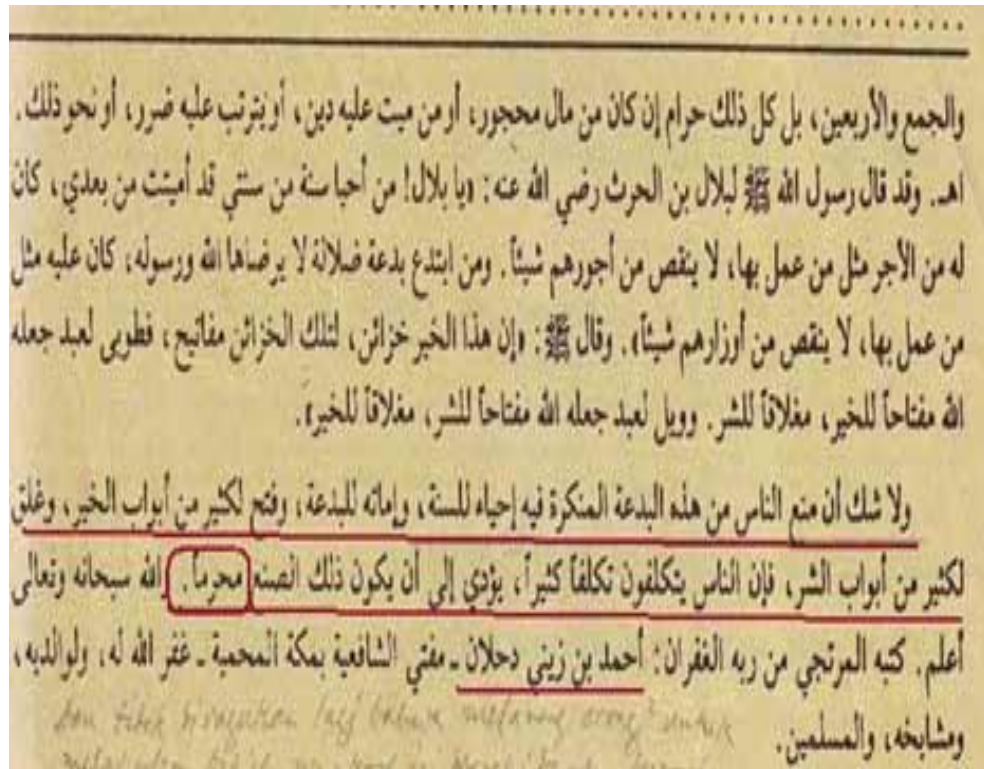 والجمع والأربعين، بل كل ذلك حرام إن كان من مال محجور، أو من ميت عليه دين، أو يترتب عليه ضرر، أو نحو ذلك.
اهـ. وقد قال رسول الله ﷺ لبلال بن الحرث رضي الله عنه: «يا بلال! من أحيا سنة من سنتي قد أميتت من بعدي، كان
له من الأجر مثل من عمل بها، لا ينقص من أجورهم شيئاً. ومن ابتدع بدعة ضلالة لا يرضاها الله ورسوله، كان عليه مثل
من عمل بها، لا ينقص من أوزارهم شيئاً». وقال ﷺ: «إن هذا الخير خزائن، لتلك الخزائن مفاتيح، فطوبى لعبد جعله
الله مفتاحاً للخير، مغلاقاً للشر. وويل لعبد جعله الله مفتاحاً للشر، مغلاقاً للخير».
ولا شك أن منع الناس من هذه البدعة المنكرة فيه إحياء للسنة، وإماته للبدعة، وفتح لكثير من أبواب الخير، وغلق
لكثير من أبواب الشر، فإن الناس يتكلفون تكلفاً كثيراً، يؤدي إلى أن يكون ذلك الصنع محرماً. الله سبحانه وتعالى
أعلم. كتبه المرتجي من ربه الغفران: أحمد بن زيني دحلان ـ مفتي الشافعية بمكة المحمية ـ غفر الله له، ولوالديه،
dan tidak lagi bahwa melarang orang2 untuk
ومشايخه، والمسلمين.